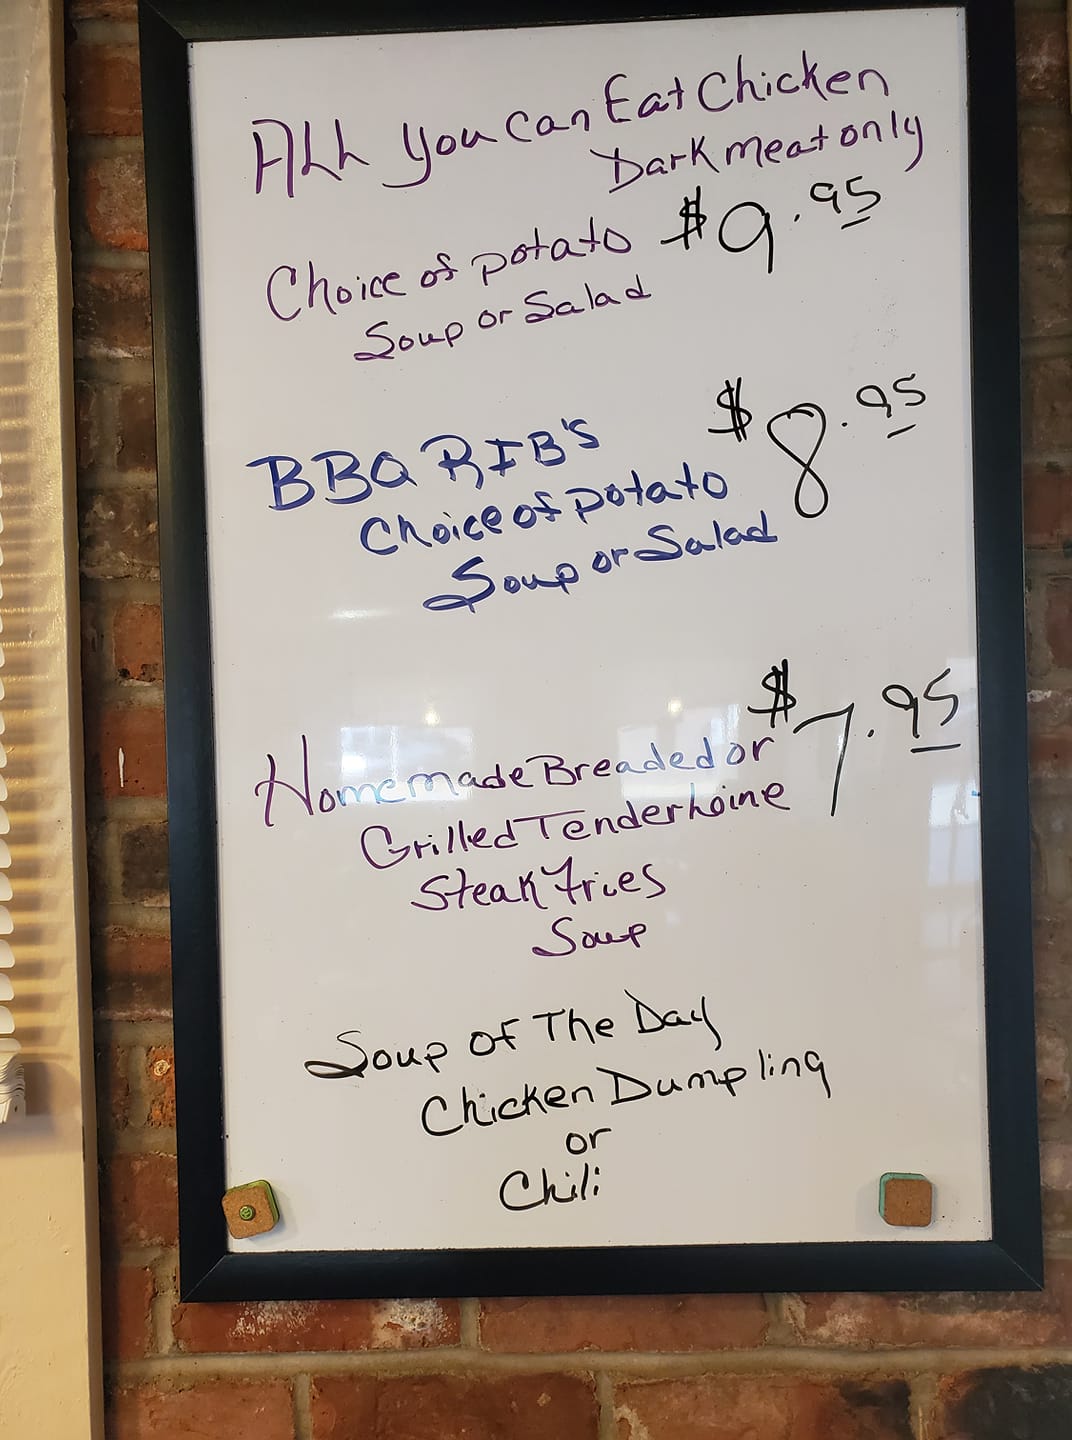 ALL you can Eat Chicken
Dark meat only
$9.95
Choice of potato
Soup or Salad
BBQ RIB'S $8.95
Choice of potato
Soup or Salad
$7.95
Homemade Breaded or
Grilled Tenderloine
Steak Fries
Soup
Soup of The Day
Chicken Dumpling
or
Chili